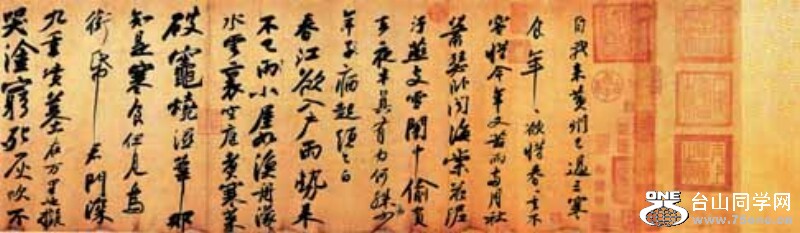 自我來黃州已過三寒
食年〻欲惜春春去不
容惜今年又苦雨兩月秋
蕭瑟卧聞海棠花泥
汙燕支雪闇中偷負
去夜半真有力何殊少
年子病起頭已白
春江欲入户雨勢來
不已雨小屋如漁舟濛
水雲裏空庖煮寒菜
破竈燒濕葦那
知是寒食但見烏
銜帋君門深
九重墳墓在万里也擬
哭塗窮死灰吹不
ONE
台山同学网